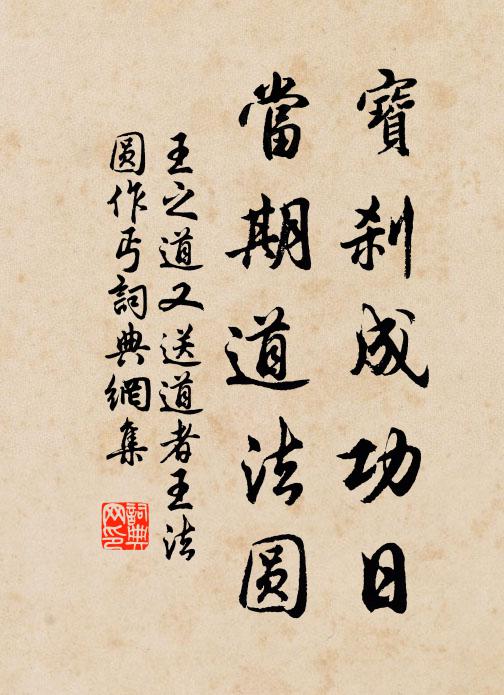 寶刹成功日
當期道法圓
王之道又送道者王法
圓作丐詞典網集
詞典网印